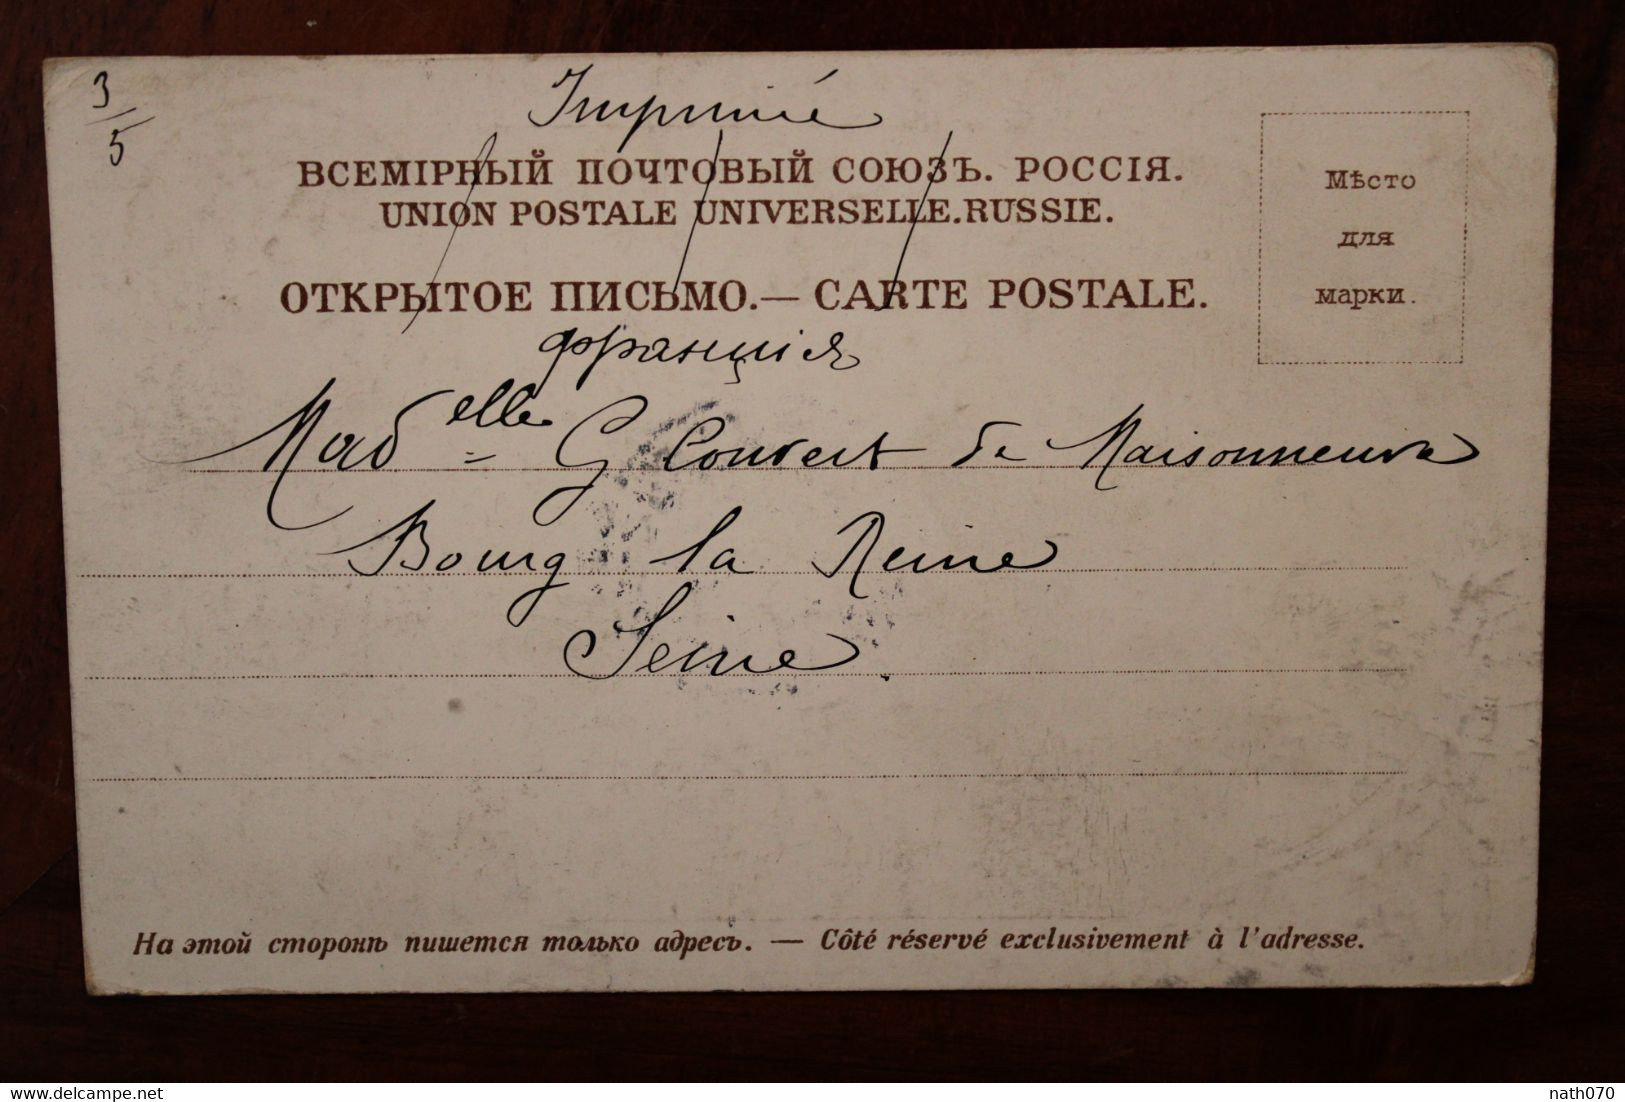 3/5
Imprimé
ВСЕМІРНЫЙ ПОЧТОВЫЙ СОЮЗЪ. РОССІЯ.
UNION POSTALE UNIVERSELLE.RUSSIE.
Мѣсто
для
марки.
ОТКРЫТОЕ ПИСЬМО.— CARTE POSTALE.
Франція
Madelle G Convert de Maisonneuve
Bourg la Reine
Seine.
На этой сторонѣ пишется только адресъ. — Côté réservé exclusivement à l'adresse.
delcampe.net
nath070